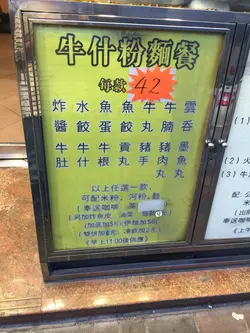 牛什粉麵餐
每款 42
炸醬
水餃
魚蛋
魚餃
牛丸
牛腩
雲吞
牛肚
牛什
牛根
貢丸
豬手
豬肉丸
墨魚丸
以上任選一款,
可配米粉、河粉、麵
(奉送咖啡、茶
(另加炸魚皮、油菜
(加底加$6)(伊麵加$6)
凍飲加2元)
《早上11:00後供應》
(1)
(2) 火